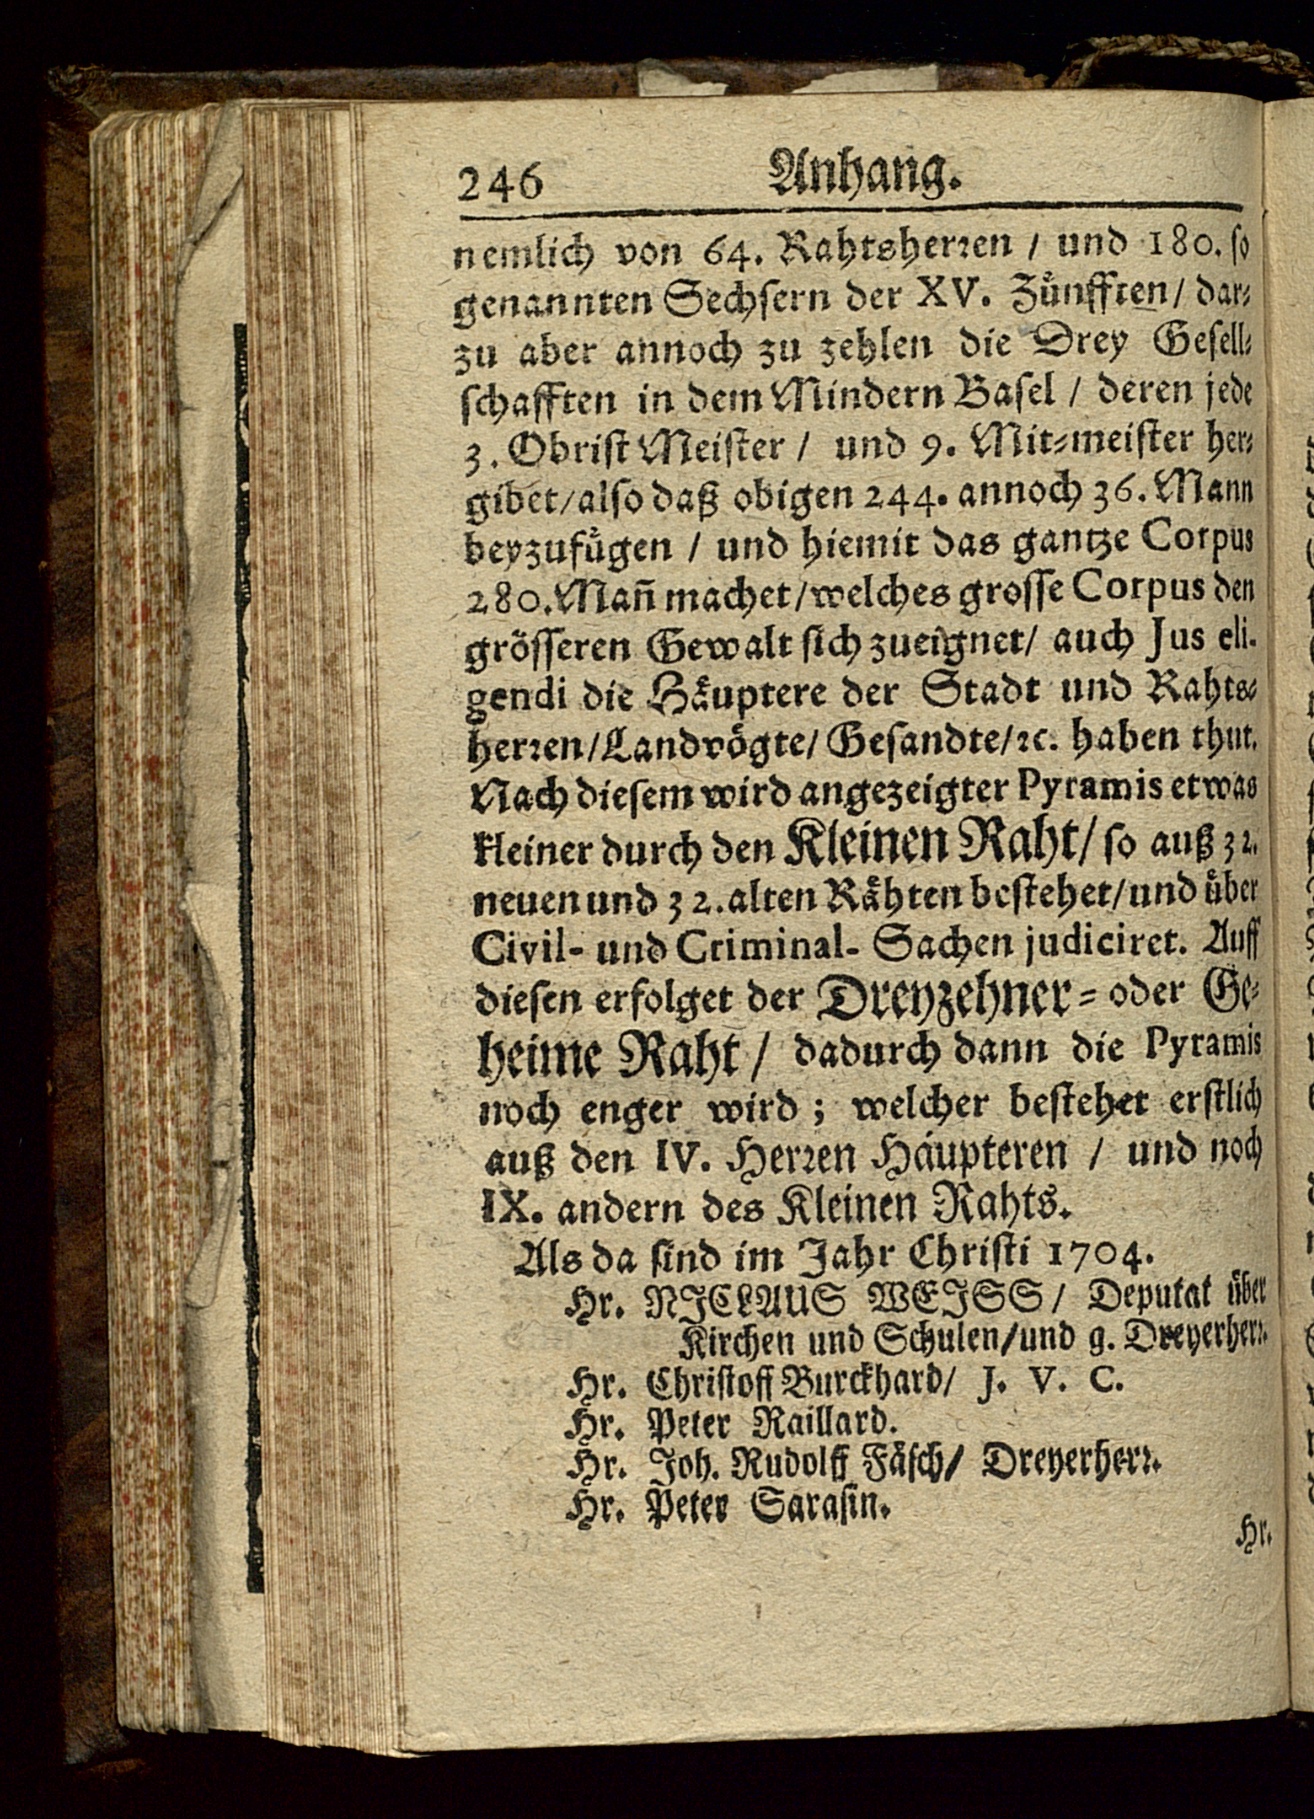 246 Anhang.
nemlich von 64. Rahtsherren / und 180. so
genannten Sechsern der XV. Zünfften / dar-
zu aber annoch zu zehlen die Drey Gesell-
schafften in dem Mindern Basel / deren jede
3. Obrist Meister / und 9. Mit-meister her-
gibet / also daß obigen 244. annoch 36. Mann
beyzufügen / und hiemit das gantze Corpus
280. Mañ machet / welches grosse Corpus den
grösseren Gewalt sich zueignet / auch Jus eli-
gendi die Häuptere der Stadt und Rahts-
herren / Landvögte / Gesandte / ꝛc. haben thut.
Nach diesem wird angezeigter Pyramis etwas
kleiner durch den Kleinen Raht / so auß 32.
neuen und 32. alten Rähten bestehet / und über
Civil- und Criminal- Sachen judiciret. Auff
diesen erfolget der Dreyzehner- oder Ge-
heime Raht / dadurch dann die Pyramis
noch enger wird ; welcher bestehet erstlich
auß den IV. Herren Häupteren / und noch
IX. andern des Kleinen Rahts.
Als da sind im Jahr Christi 1704.
Hr. NICLAUS WEISS / Deputat über
Kirchen und Schulen / und g. Dreyerherr.
Hr. Christoff Burckhard / J. V. C.
Hr. Peter Raillard.
Hr. Joh. Rudolff Fäsch / Dreyerherr.
Hr. Peter Sarasin.
Hr.